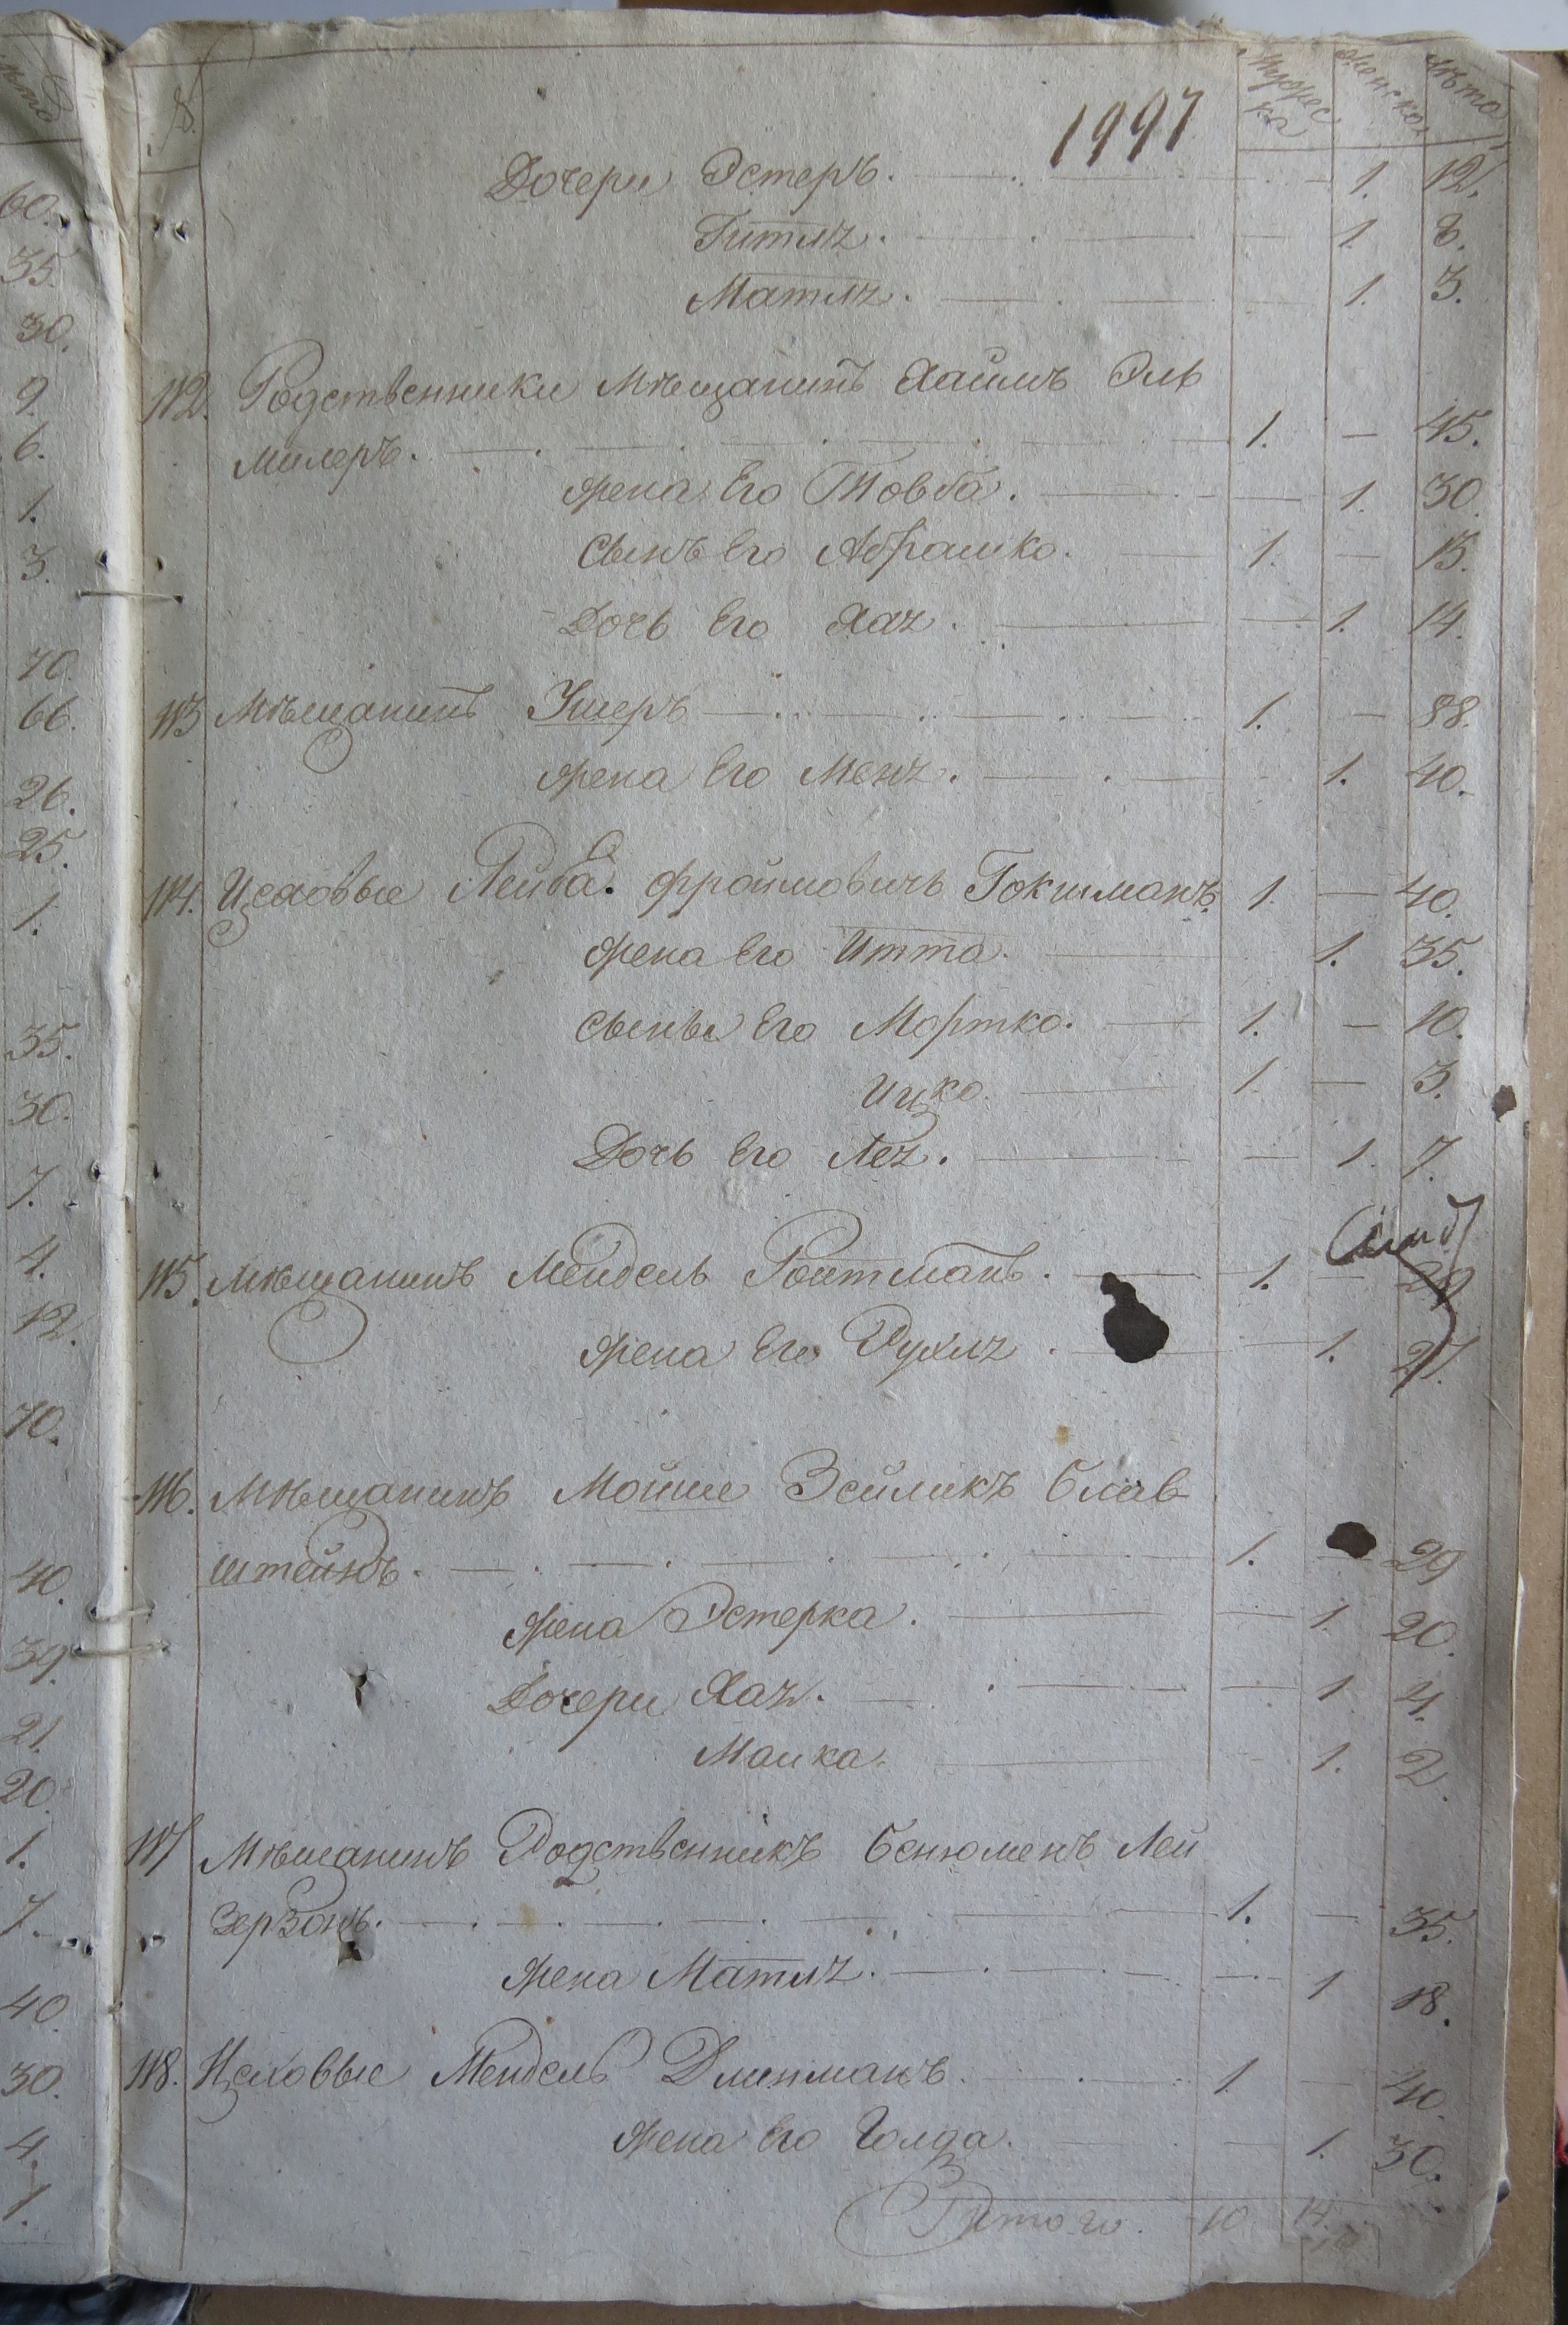 № Мужеска Женска лѣта
1997
Дочери Эстеръ. 1. 12.
Гитля. 1. 8.
Матля. 1. 3.
112. Родственники Мѣщанинъ Хаимъ Эль
милеръ. 1. — 45.
Жена Его Товба. 1. 30.
Сынъ Его Абрашко. 1. — 15.
Дочь Его Хая. 1. 14.
113 Мѣщанинъ Ушеръ 1. — 88.
Жена Его Меня. 1. 40.
114. Цеховые Лейба Фроимовичъ Гокшманъ 1. — 40.
Жена Его Итта. 1. 35.
Сыны Его Мортко. 1. — 10.
Ицко. 1. — 3.
Дочь Его Лея. 1. 7.
115. Мѣщанинъ Мендель Роитманъ. 1. —
Жена Его Рухля. 1. 21.
116. Мѣщанинъ Мойше Зейликъ Блав
штейнъ. 1. — 29
Жена Эстерка. 1. 20.
Дочери Хая. 1 4.
Малка. 1. 2.
117 Мѣщанинъ Родственникъ Бенюменъ Лей
Зерзонъ. 1. — 35.
Жена Матля. 1 18.
118. Цеховые Мендель Длипманъ. 1. — 40.
Жена Его Голда. 1. 30.
Итого. 10. 14.
60.
35.
30.
9.
6.
1.
3.
70.
66.
26.
25.
1.
35.
30.
7.
4.
12.
70.
40.
39.
21.
20.
1.
7.
40.
30.
4.
1.